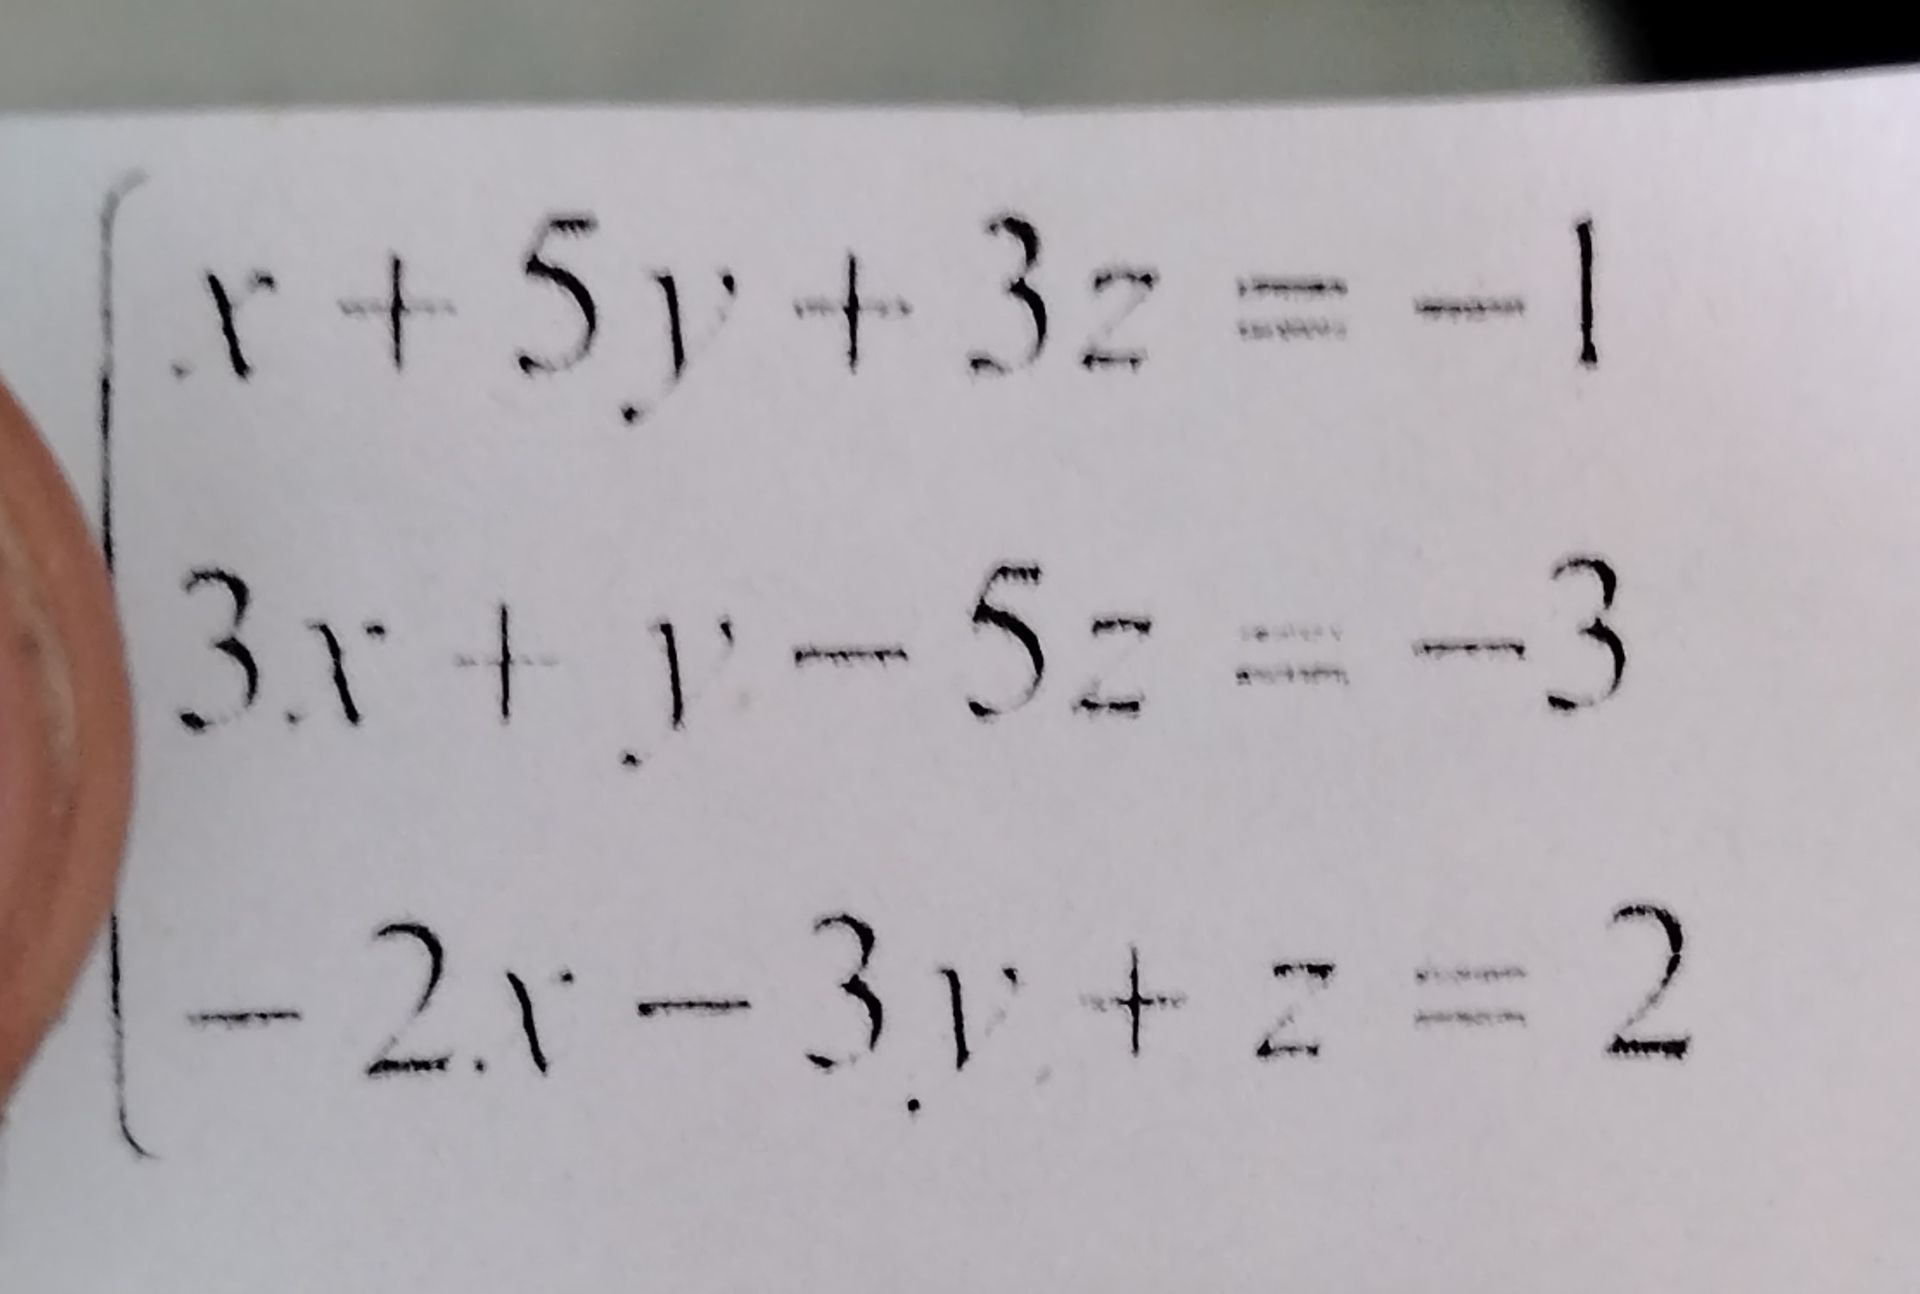 x + 5y + 3z = -1
3x + y - 5z = -3
-2x - 3y + z = 2